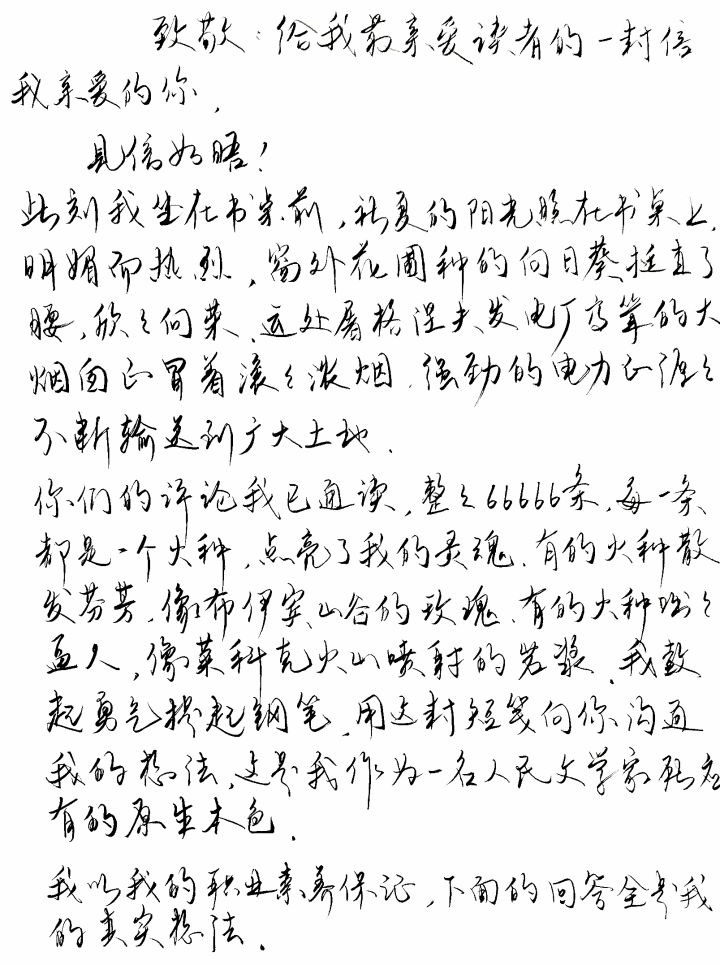 致敬：给我最亲爱读者的一封信
我亲爱的你，
见信如晤！
此刻我坐在书桌前，初夏的阳光照在书桌上，
明媚而热烈，窗外花圃种的向日葵挺直了
腰，欣欣向荣，远处屠格涅夫发电厂高耸的大
烟囱正冒着滚滚浓烟，强劲的电力正源源
不断输送到广大土地。
你们的评论我已通读，整整66666条，每一条
都是一个火种，点亮了我的灵魂，有的火种散
发芬芳，像布伊宾山谷的玫瑰，有的火种咄咄
逼人，像莱科克火山喷射的岩浆，我鼓
起勇气提起钢笔，用这封短笺向你沟通
我的想法，这是我作为一名人民文学家所应
有的原生本色。
我以我的职业素养保证，下面的回答全是我
的真实想法。